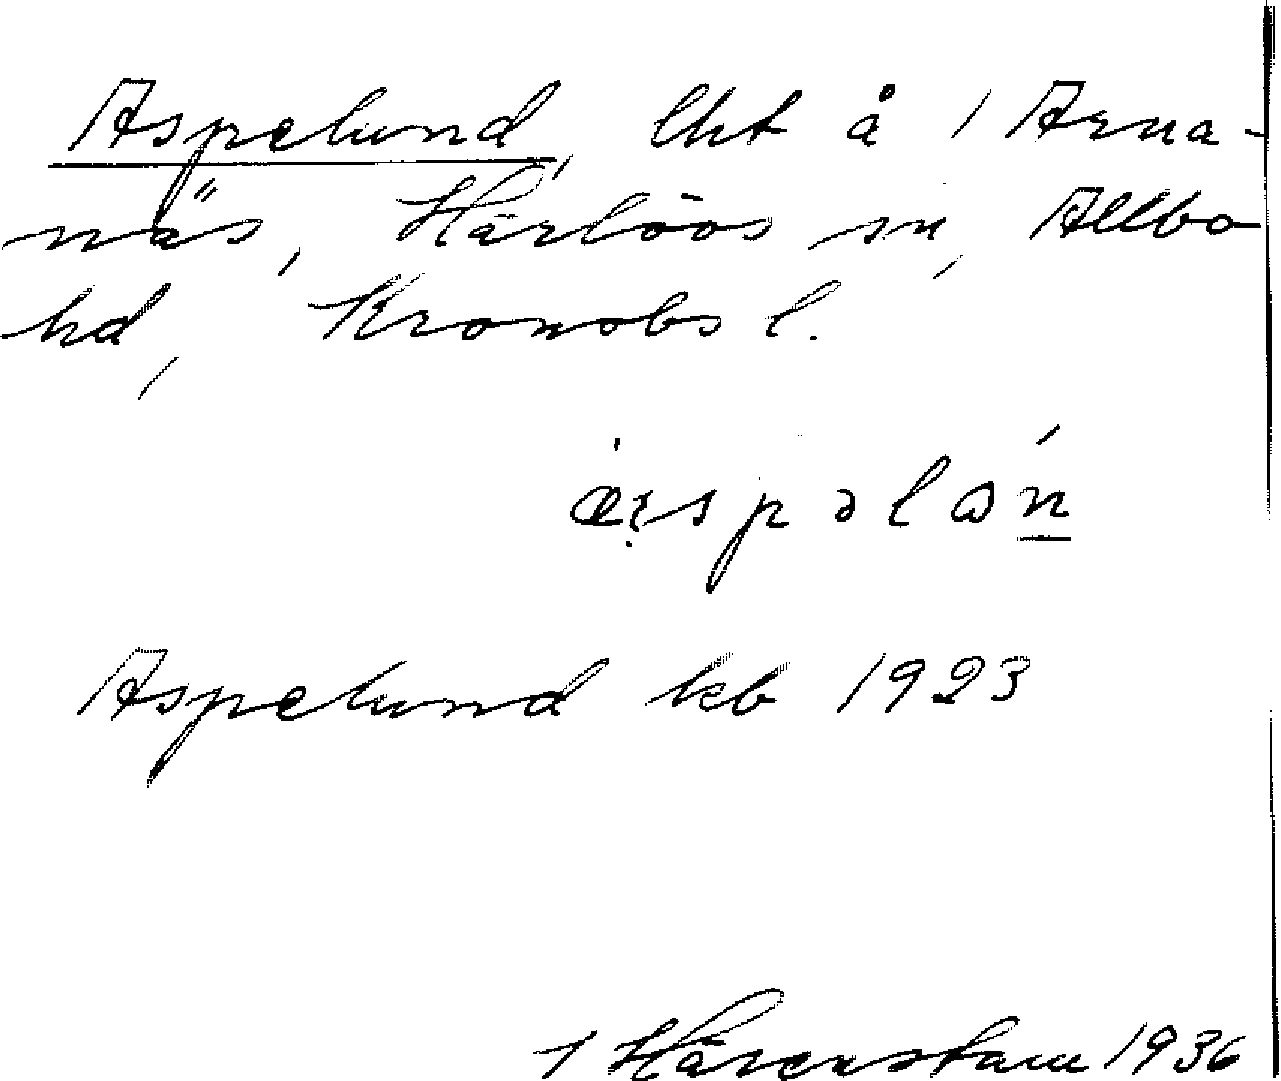 Aspelund, lht å 1 Arna-
näs, Härlövs sn, Allbo
hd, Kronobs l.
Aspelund kb 1923
1 Härenstam 1936